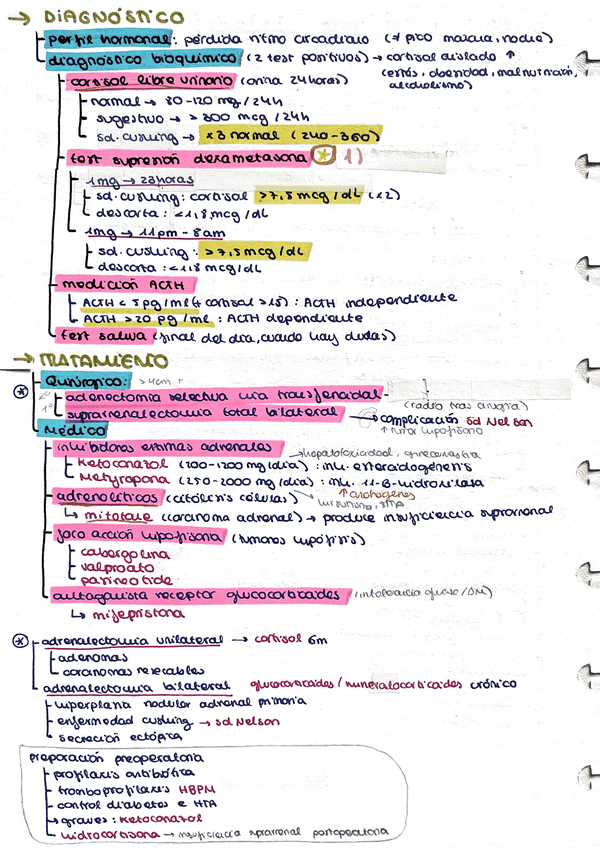 → DIAGNÓSTICO
perfil hormonal: pérdida ritmo circadiano (≠ pico mañana, noche)
diagnóstico bioquímico (2 test positivos) → cortisol aislado ↑
(estrés, obesidad, malnutrición, alcoholismo)
cortisol libre urinario (orina 24horas)
normal → 80-120 mcg/24h
sugestivo → > 300 mcg/24h
sd. cushing → x3 normal (240-360)
test supresión dexametasona ★ 1)
1mg → 23horas
sd. cushing: cortisol >7,5 mcg/dL (x2)
descarta: <1,8 mcg/dL
1mg → 11pm - 8am
sd. cushing: >7,5 mcg/dL
descarta: <1.8 mcg/dL
medición ACTH
ACTH < 5 pg/ml (+ cortisol >15): ACTH independiente
ACTH > 20 pg/ml: ACTH dependiente
test saliva (final del día, cuando hay dudas)
→ TRATAMIENTO
Quirúrgico: >4cm +
* 2º adenectomía selectiva vía transfenoidal
(radio tras cirugía)
1º suprarrenalectomía total bilateral → complicación sd Nelson
↑ tumor hipofisario
Médico
inhibidores enzimas adrenales → hepatotoxicidad, ginecomastia
Ketoconazol (200-1200 mg/día): inh. esteroidogénesis
Metyrapona (250-2000 mg/día): inh. 11-B-hidroxilasa
adrenolíticos (citólisis células) ↑ andrógenos
hirsutismo, HTA
↳ mitotane (carcinoma adrenal) → produce insuficiencia suprarrenal
foco acción hipofisaria (tumores hipófisis)
cabergolina
valproato
pasireotide
antagonista receptor glucocorticoides (intolerancia glucosa/DM)
↳ mifepristona
* adrenalectomía unilateral → cortisol 6m
adenomas
carcinomas resecables
adrenalectomía bilateral glucocorticoides/mineralocorticoides crónico
hiperplasia nodular adrenal primaria
enfermedad cushing → sd Nelson
secreción ectópica
preparación preoperatoria
profilaxis antibiótica
tromboprofilaxis HBPM
control diabetes e HTA
graves: Ketoconazol
hidrocortisona → insuficiencia suprarrenal postoperatoria